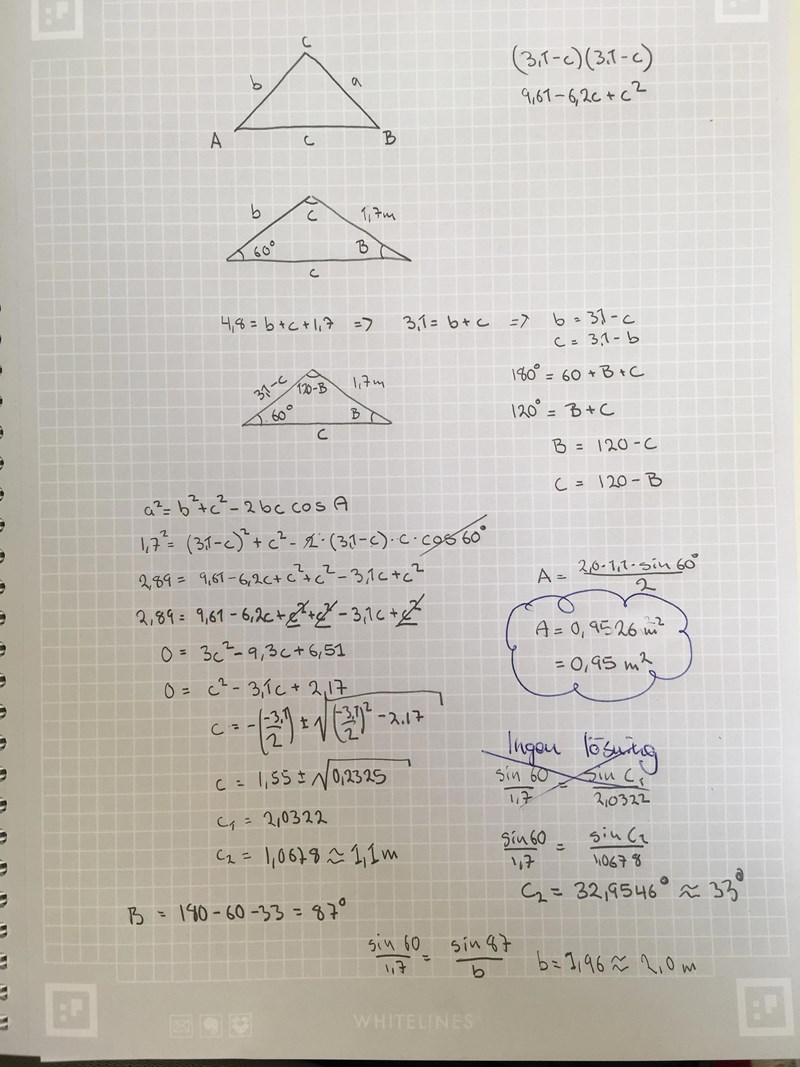 C
b a
A c B
(3,1-c)(3,1-c)
9,61-6,2c+c²
b C 1,7m
60° B
c
4,8=b+c+1,7 => 3,1=b+c => b=3,1-c
c=3,1-b
3,1-c 120-B 1,7m
60° B
c
180°=60+B+C
120°=B+C
B=120-C
C=120-B
a²=b²+c²-2bc cos A
1,7²=(3,1-c)²+c²-2·(3,1-c)·c·cos 60°
2,89=9,61-6,2c+c²+c²-3,1c+c²
2,89=9,61-6,2c+c²+c²-3,1c+c²
0=3c²-9,3c+6,51
0=c²-3,1c+2,17
c=-(-3,1/2)±√((-3,1/2)²-2.17
c=1,55±√0,2325
c₁=2,0322
c₂=1,0678≈1,1m
A=2,0·1,1·sin 60°/2
A=0,9526 m²
=0,95 m²
Ingen lösning
sin 60/1,7=sin C₁/2,0322
sin 60/1,7=sin C₂/1,0678
C₂=32,9546°≈33°
B=180-60-33=87°
sin 60/1,7=sin 87/b b=1,96≈2,0m
WHITELINES®